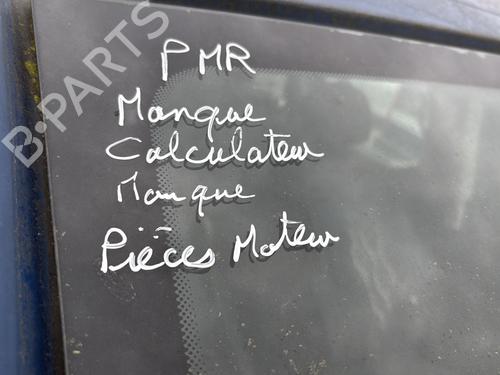 B-PARTS
PMR
Manque
Calculateur
Manque
Pièces Moteur